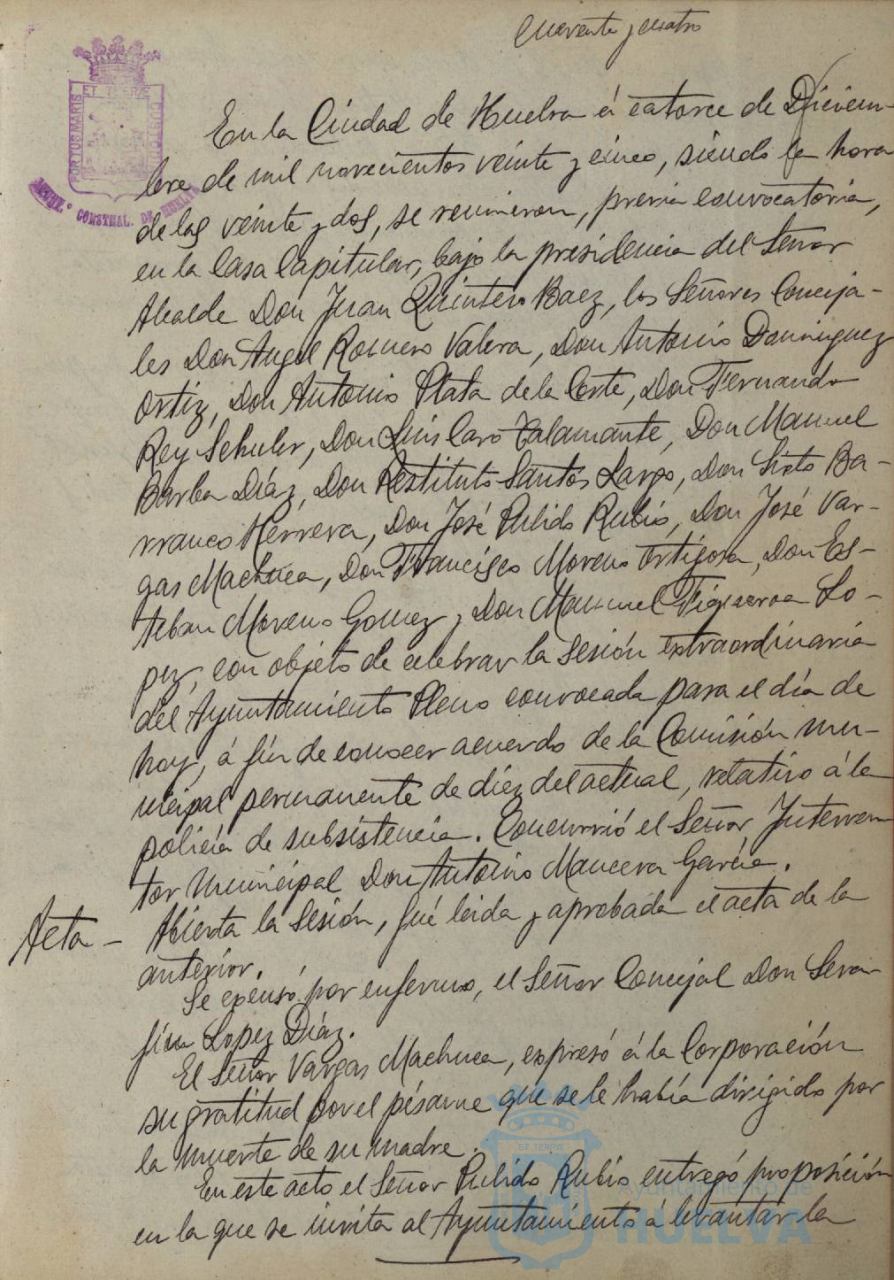 Cuarenta y cuatro
PORTUS MARIS ET TERRAE CUSTODIA
AYUNT.º CONSTNAL. DE HUELVA
En la Ciudad de Huelva á catorce de Diciem-
bre de mil novecientos veinte y cinco, siendo la hora
de las veinte y dos, se reunieron, previa convocatoria,
en la Casa Capitular, bajo la presidencia del Señor
Alcalde Don Juan Quintero Baez, los Señores Conceja-
les Don Angel Romero Valera, Don Antonio Dominguez
Ortiz, Don Antonio Plata de la Corte, Don Fernando
Rey Schuler, Don Luis Caro Talamante, Don Manuel
Barba Díaz, Don Restituto Santos Largo, Don Sixto Ba-
rranco Herrera, Don José Pulido Rubio, Don José Var-
gas Machuca, Don Francisco Moreno Ortigosa, Don Es-
teban Moreno Gomez y Don Manuel Figueroa Lo-
pez, con objeto de celebrar la sesión extraordinaria
del Ayuntamiento Pleno convocada para el día de
hoy, á fin de conocer acuerdo de la Comisión mu-
nicipal permanente de diez del actual, relativo á la
policía de subsistencia. Concurrió el Señor Interven
tor Municipal Don Antonio Mancera García.
Acta - Abierta la Sesión, fué leida y aprobada el acta de la
anterior.
Se excusó por enfermo, el Señor Concejal Don Sera
fín Lopez Díaz.
El Señor Vargas Machuca, expresó á la Corporación
su gratitud por el pésame que se le había dirigido por
la muerte de su madre.
En este acto el Señor Pulido Rubio entregó proposición
en la que se invita al Ayuntamiento á levantar la
Ayuntamiento de
HUELVA